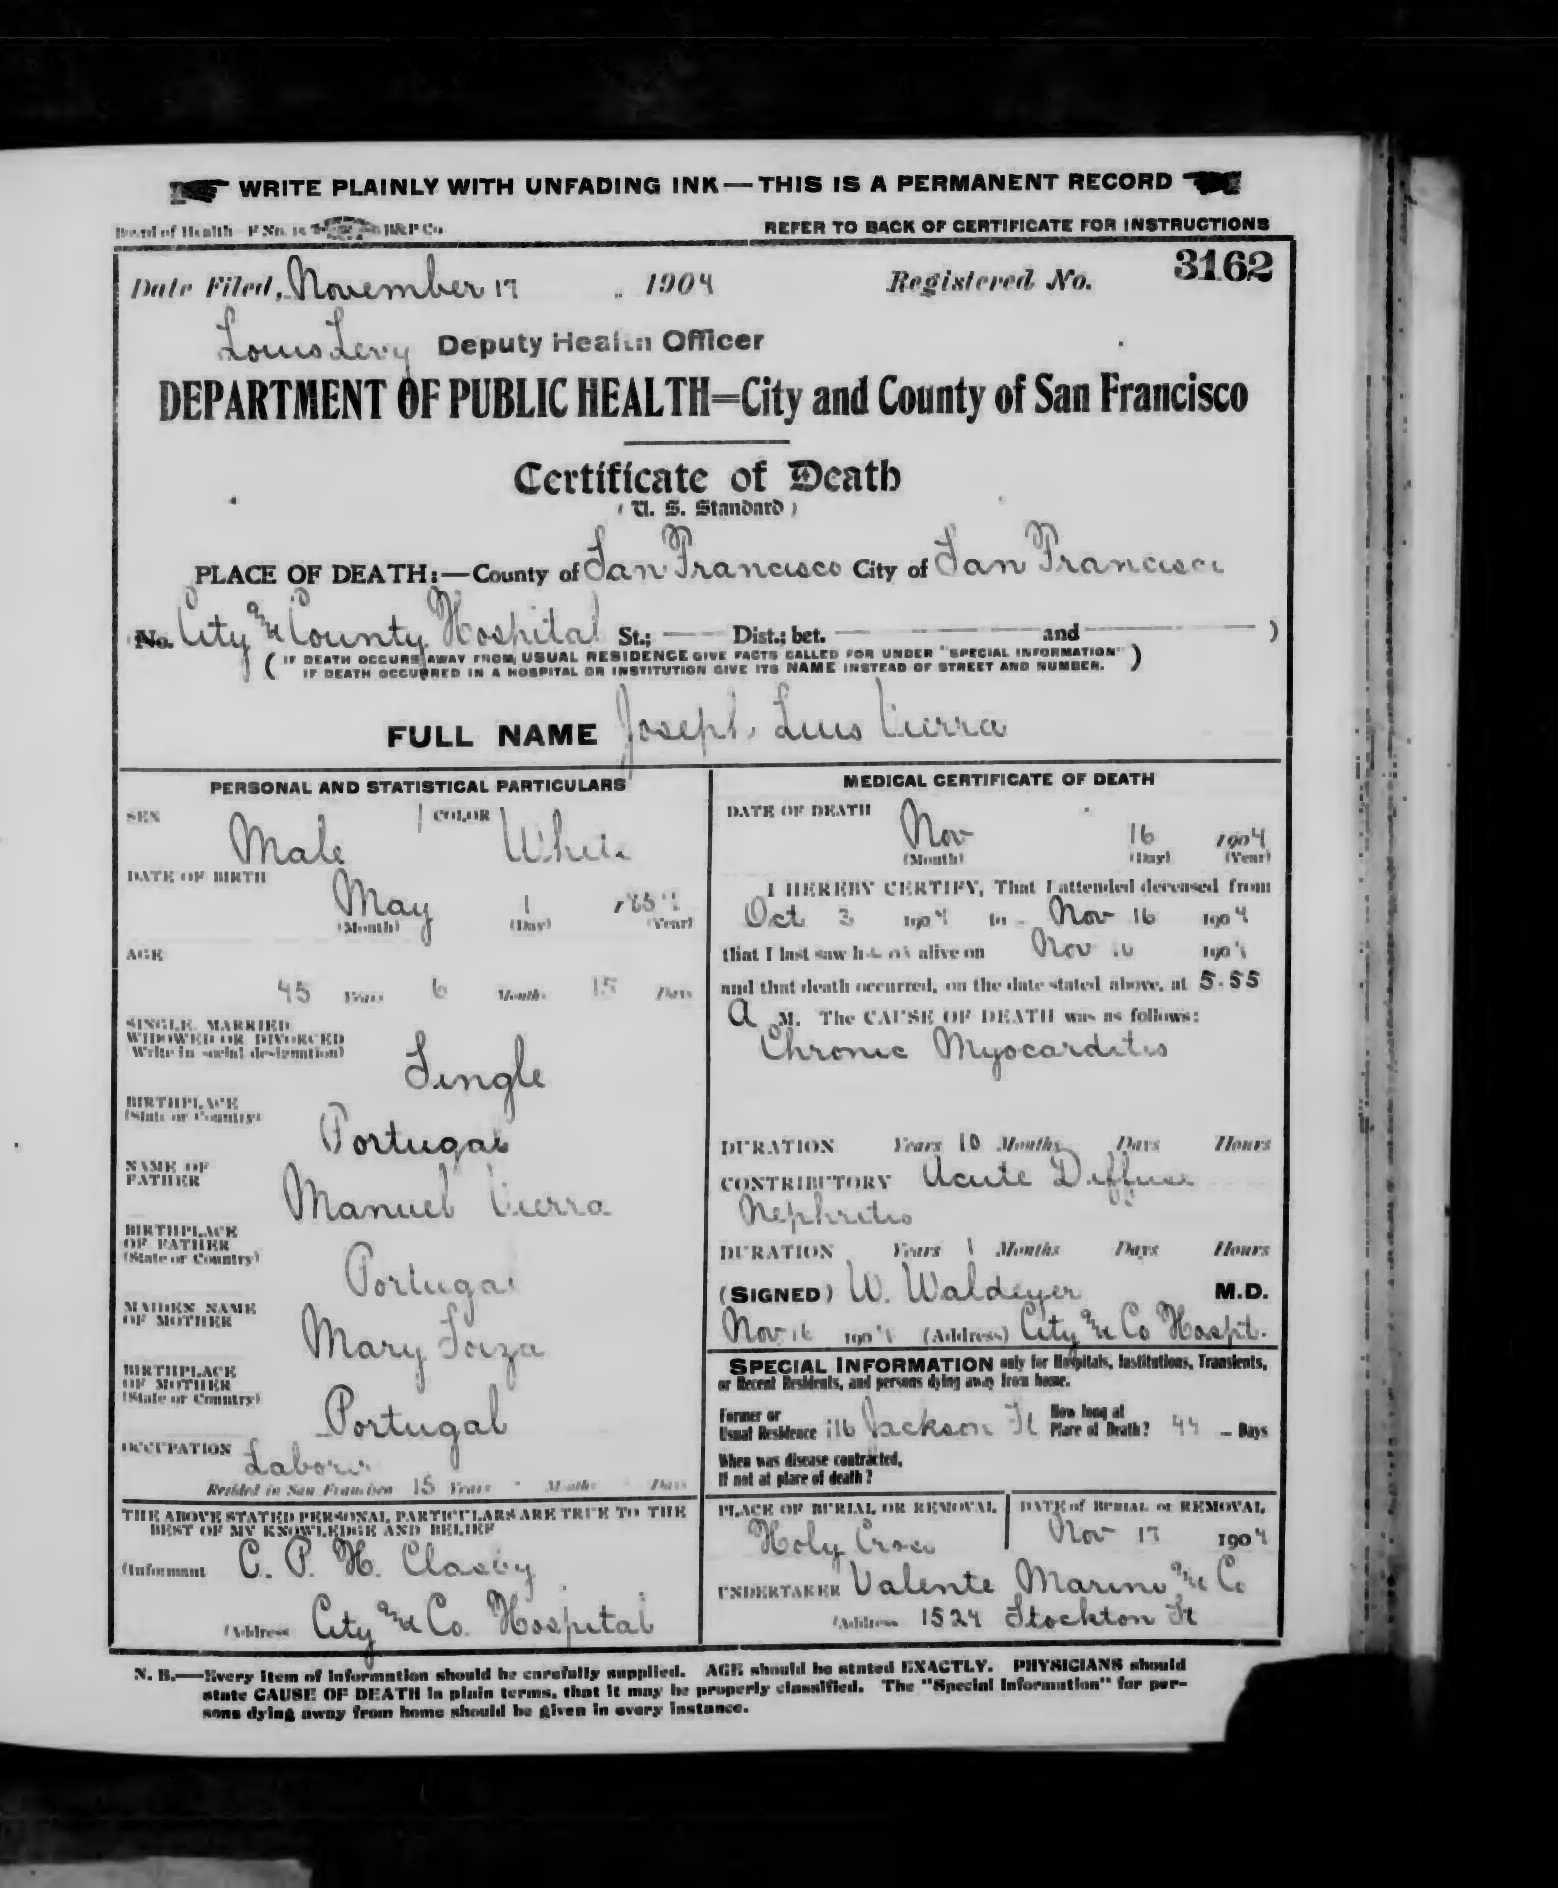 WRITE PLAINLY WITH UNFADING INK — THIS IS A PERMANENT RECORD
Board of Health - F No. 15 B&P Co. REFER TO BACK OF CERTIFICATE FOR INSTRUCTIONS
Date Filed, November 17 1904 Registered No. 3162
Louis Levy Deputy Health Officer
DEPARTMENT OF PUBLIC HEALTH=City and County of San Francisco
Certificate of Death
(U. S. Standard)
PLACE OF DEATH:—County of San Francisco City of San Francisco
No. City and County Hospital St.; Dist.; bet. and )
( IF DEATH OCCURS AWAY FROM USUAL RESIDENCE GIVE FACTS CALLED FOR UNDER "SPECIAL INFORMATION" )
IF DEATH OCCURRED IN A HOSPITAL OR INSTITUTION GIVE ITS NAME INSTEAD OF STREET AND NUMBER.
FULL NAME Joseph Luis Vierra
PERSONAL AND STATISTICAL PARTICULARS
SEX Male COLOR White
DATE OF BIRTH May 1
(Month) (Day) (Year)
AGE
45 Years 6 Months 15 Days
SINGLE, MARRIED
WIDOWED OR DIVORCED
Write in social designation)
Single
BIRTHPLACE
(State or Country)
Portugal
NAME OF
FATHER
Manuel Vierra
BIRTHPLACE
OF FATHER
(State or Country)
Portugal
MAIDEN NAME
OF MOTHER
Mary Soiza
BIRTHPLACE
OF MOTHER
(State or Country)
Portugal
OCCUPATION Laborer
Resided in San Francisco 15 Years Months Days
THE ABOVE STATED PERSONAL PARTICULARS ARE TRUE TO THE
BEST OF MY KNOWLEDGE AND BELIEF
(Informant C. P. H. Clasby
(Address City and Co. Hospital
MEDICAL CERTIFICATE OF DEATH
DATE OF DEATH
Nov 16 1904
(Month) (Day) (Year)
I HEREBY CERTIFY, That I attended deceased from
Oct 3 1904 to Nov 16 1904
that I last saw him alive on Nov 16 1904
and that death occurred, on the date stated above, at 5.55
A M. The CAUSE OF DEATH was as follows:
Chronic Myocarditis
DURATION Years 10 Months Days Hours
CONTRIBUTORY Acute Diffuse
Nephritis
DURATION Years 1 Months Days Hours
(SIGNED) W. Waldeyer M.D.
Nov 16 1904 (Address) City and Co Hospt.
SPECIAL INFORMATION only for Hospitals, Institutions, Transients,
or Recent Residents, and persons dying away from home.
Former or
Usual Residence 116 Jackson St
How long at
Place of Death? 44 Days
When was disease contracted,
If not at place of death?
PLACE OF BURIAL OR REMOVAL
Holy Cross
DATE of BURIAL or REMOVAL
Nov 17 1904
UNDERTAKER Valente Marini and Co
(Address 1524 Stockton St
N. B.—Every item of information should be carefully supplied. AGE should be stated EXACTLY. PHYSICIANS should
state CAUSE OF DEATH in plain terms, that it may be properly classified. The "Special Information" for per-
sons dying away from home should be given in every instance.